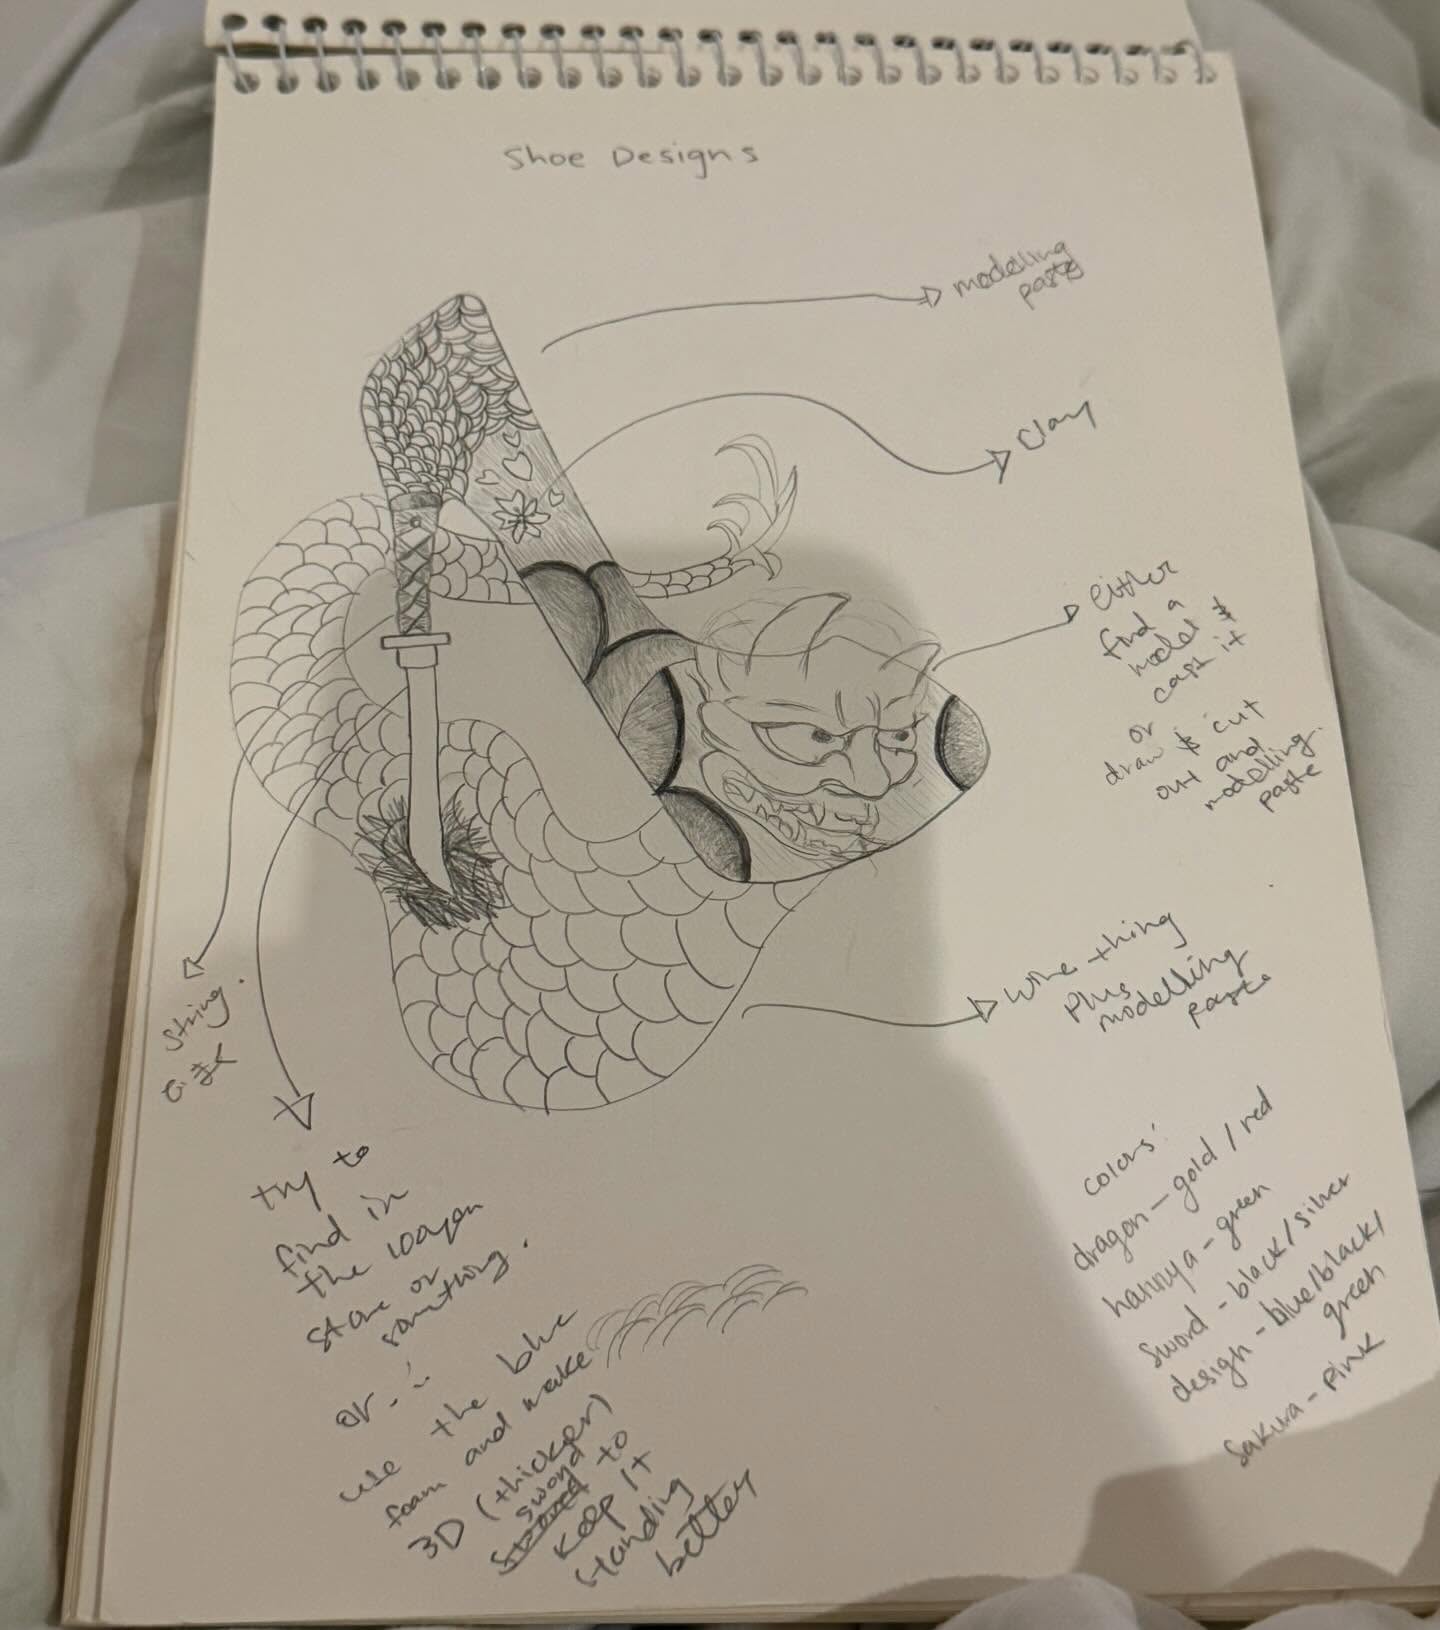 Shoe Designs
modelling
paste
Clay
either
find a
model &
cast it
or
draw & cut
out and
modelling
paste
wire thing
plus
modelling
paste
String.
try to
find in
the
store or
something.
or..
use the blue
foam and make
3D (thicker)
sword
to
keep it
standing
better
colors:
dragon - gold/red
hannya - green
sword - black/silver
design - blue/black/
green
Sakura - pink